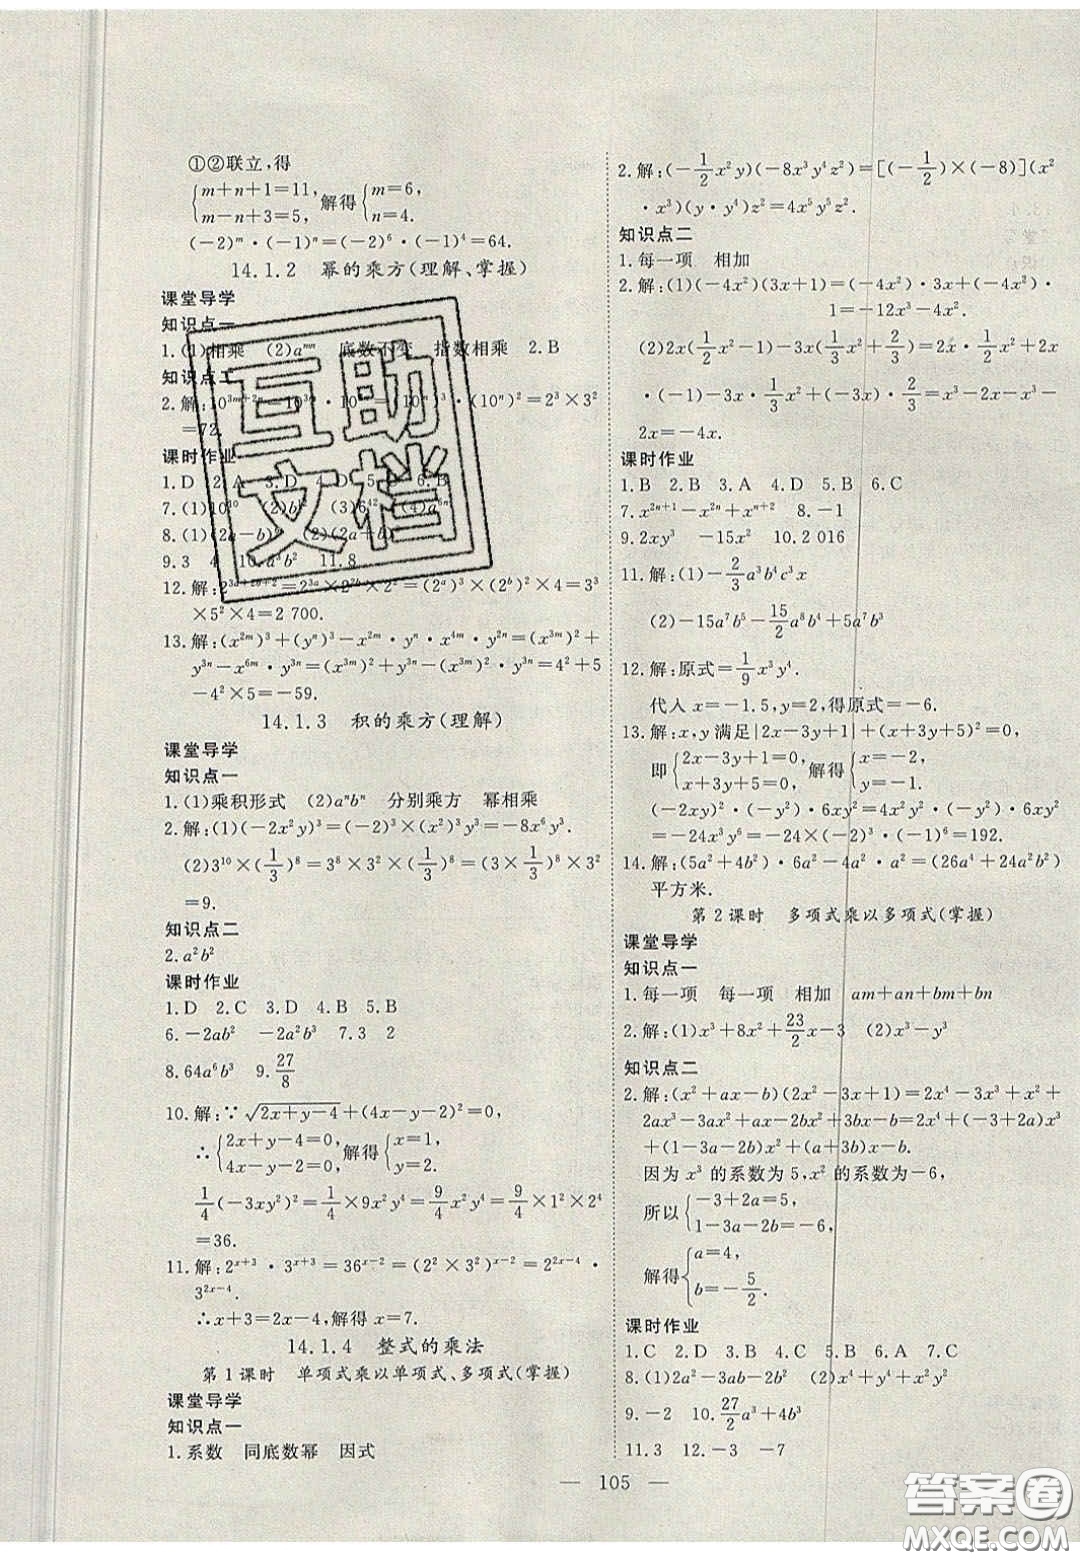 ①②联立,得
{m+n+1=11, m-n+3=5, 解得{m=6, n=4.
(-2)ᵐ·(-1)ⁿ=(-2)⁶·(-1)⁴=64.
14.1.2 幂的乘方(理解、掌握)
课堂导学
知识点一
1.(1)相乘 (2)aᵐⁿ 底数不变 指数相乘 2.B
知识点二
2.解:10³ᵐ⁺²ⁿ=10³ᵐ·10²ⁿ=(10ᵐ)³·(10ⁿ)²=2³×3²
=72.
课时作业
1.D 2.A 3.D 4.D 5. 6.B
7.(1)10³⁰ (2)b (3)6⁴² (4)a
8.(1)(2a-b) (2)(2a-b)
9.3 4 10.a³b² 11.8
12.解:2³ᵃ⁺²ᵇ⁺²=2³ᵃ×2²ᵇ×2²=(2ᵃ)³×(2ᵇ)²×2²=3³
×5²×4=2 700.
13.解:(x²ᵐ)³+(yⁿ)³-x²ᵐ·yⁿ·x⁴ᵐ·y²ⁿ=(x²ᵐ)³+
y³ⁿ-x⁶ᵐ·y³ⁿ=(x³ᵐ)²+y³ⁿ-(x³ᵐ)²·y³ⁿ=4²+5
-4²×5=-59.
14.1.3 积的乘方(理解)
课堂导学
知识点一
1.(1)乘积形式 (2)aⁿbⁿ 分别乘方 幂相乘
2.解:(1)(-2x²y)³=(-2)³×(x²)³×y³=-8x⁶y³.
(2)3¹⁰×(1/3)⁸=3⁸×3²×(1/3)⁸=(3×1/3)⁸×3²
=9.
知识点二
2.a²b²
课时作业
1.D 2.C 3.D 4.B 5.B
6.-2ab² -2a²b³ 7.3 2
8.64a⁶b³ 9.27/8
10.解:∵√(2x+y-4)+(4x-y-2)²=0,
∴{2x+y-4=0, 4x-y-2=0, 解得{x=1, y=2.
1/4(-3xy²)²=1/4×9x²y⁴=9/4x²y⁴=9/4×1×2⁴
=36.
11.解:2ˣ⁺³·3ˣ⁺³=36ˣ⁻²=(2²×3²)ˣ⁻²=2²ˣ⁻⁴·
3²ˣ⁻⁴.
∴x+3=2x-4,解得x=7.
14.1.4 整式的乘法
第1课时 单项式乘以单项式、多项式(掌握)
课堂导学
知识点一
1.系数 同底数幂 因式
2.解:(-1/2x²y)(-8x³y⁴z²)=[(-1/2)×(-8)](x²
·x³)(y·y⁴)z²=4x⁵y⁵z².
知识点二
1.每一项 相加
2.解:(1)(-4x²)(3x+1)=(-4x²)·3x+(-4x²)·
1=-12x³-4x².
(2)2x(1/2x²-1)-3x(1/3x²+2/3)=2x·1/2x²+2x
·(-1)-3x·1/3x²+(-3x)·2/3=x³-2x-x³-
2x=-4x.
课时作业
1.B 2.B 3.A 4.D 5.B 6.C
7.x²ⁿ⁺¹-x²ⁿ+xⁿ⁺² 8.-1
9.2xy³ -15x² 10.2 016
11.解:(1)-2/3a³b⁴c³x
(2)-15a⁷b⁵-15/2a⁸b⁴+5a⁷b³
12.解:原式=1/9x³y⁴.
代入x=-1.5,y=2,得原式=-6.
13.解:x,y满足|2x-3y+1|+(x+3y+5)²=0,
即{2x-3y+1=0, x+3y+5=0, 解得{x=-2, y=-1.
(-2xy)²·(-y²)·6xy²=4x²y²·(-y²)·6xy²
=-24x³y⁶=-24×(-2)³×(-1)⁶=192.
14.解:(5a²+4b²)·6a²-4a²·a²=(26a⁴+24a²b²)
平方米.
第2课时 多项式乘以多项式(掌握)
课堂导学
知识点一
1.每一项 每一项 相加 am+an+bm+bn
2.解:(1)x³+8x²+23/2x-3 (2)x³-y³
知识点二
2.解:(x²+ax-b)(2x²-3x+1)=2x⁴-3x³+x²+
2ax³-3ax²+ax-2bx²+3bx-b=2x⁴+(-3+2a)x³
+(1-3a-2b)x²+(a+3b)x-b.
因为x³的系数为5,x²的系数为-6,
所以{-3+2a=5, 1-3a-2b=-6,
解得{a=4, b=-5/2.
课时作业
1.C 2.D 3.D 4.D 5.B 6.A 7.C
8.(1)2a²-3ab-2b² (2)x⁴+y⁴+x²y²
9.-2 10.27/2a³+4b³
11.3 12.-3 -7
— 105 —
互助
文档
答案圈
MXQE.COM